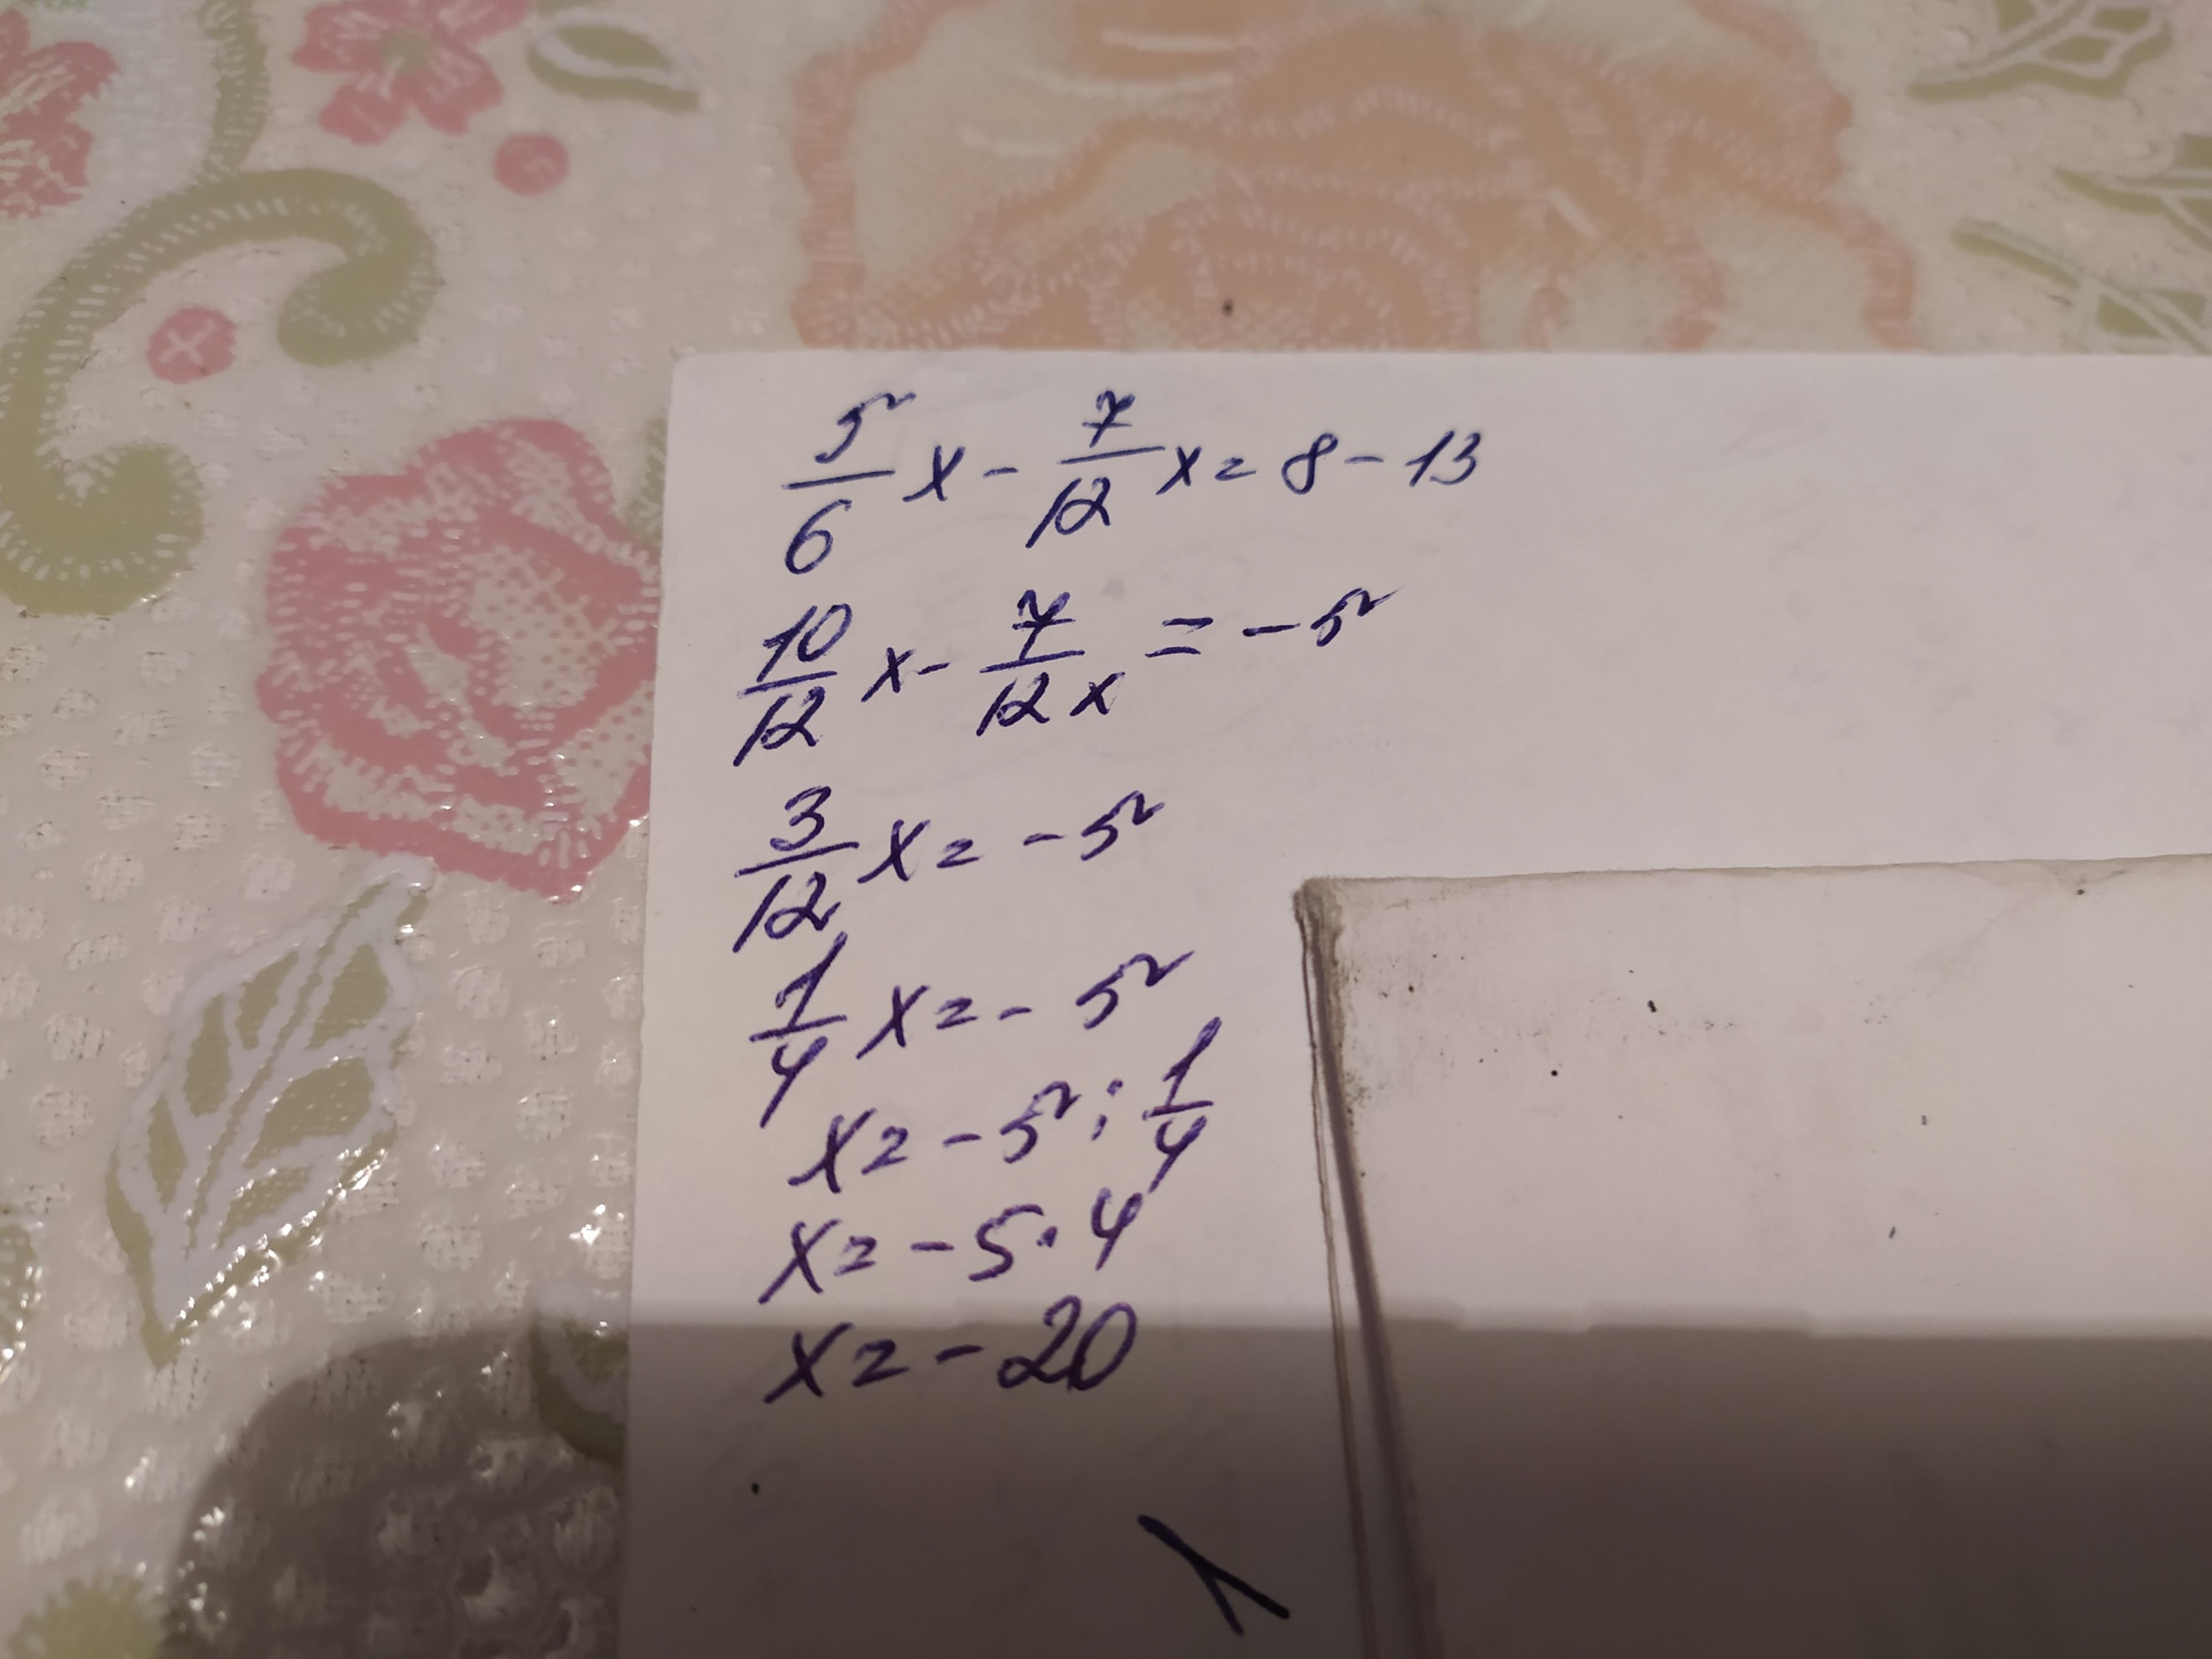 5/6 x - 7/12 x = 8 - 13
10/12 x - 7/12 x = -5
3/12 x = -5
1/4 x = -5
x = -5 : 1/4
x = -5 · 4
x = -20